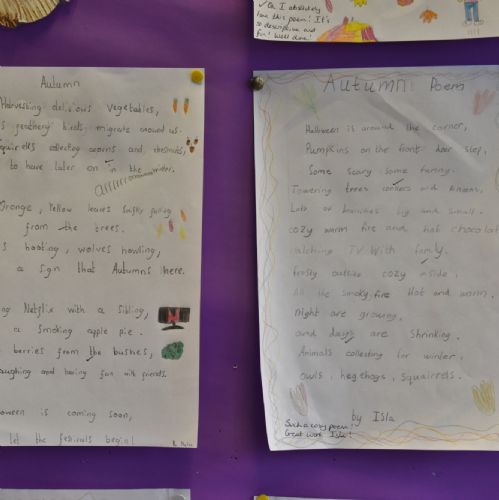 Oh I absolutely
love this poem! It's
so descriptive and
fun! Well done!
Autumn
Harvesting delicious vegetables,
feathery birds migrate around us.
collecting acorns and chestnuts,
to have later on in the winter.
Orange, Yellow leaves swiftly falling
from the trees.
hooting, wolves howling,
a sign that Autumns here.
Netflix with a sibling,
a smoking apple pie.
berries from the bushes,
and having fun with friends.
is coming soon,
let the festivals begin!
Autumn Poem
Halloween is around the corner,
Pumpkins on the front door step,
Some scary some funny.
Towering trees conkers and
Lots of branches big and small.
cozy warm fire and hot chocolat
watching TV With family.
frosty outside cozy inside,
All the smoky fire Hot and warm,
night are growing,
and days are shrinking.
Animals collecting for winter,
owls, hegehogs, squairrels.
by Isla
Such a cosy poem!
Great work Isla!